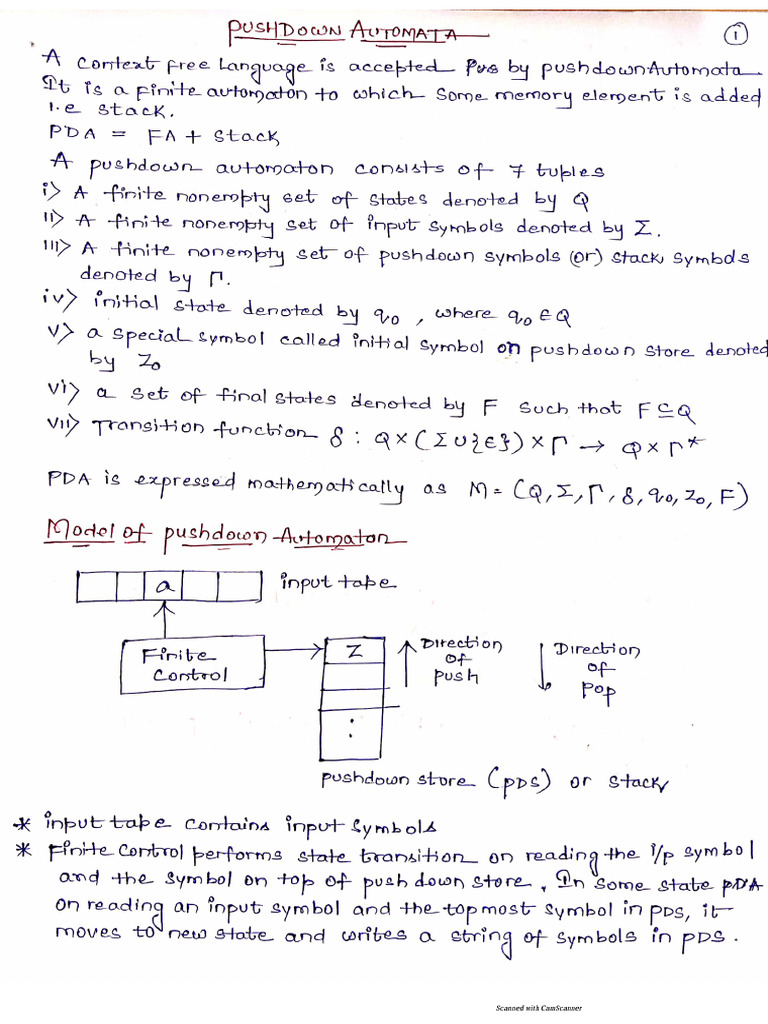 PUSHDOWN AUTOMATA
1
A context free language is accepted by pushdown Automata.
It is a finite automaton to which some memory element is added
i.e stack.
PDA = FA + Stack
A pushdown automaton consists of 7 tuples
i) A finite nonempty set of states denoted by Q
ii) A finite nonempty set of input symbols denoted by Σ.
iii) A finite nonempty set of pushdown symbols (or) stack symbols
denoted by Γ.
iv) initial state denoted by q₀, where q₀ ∈ Q
v) a special symbol called initial symbol on pushdown store denoted
by Z₀
vi) a set of final states denoted by F such that F ⊆ Q
vii) Transition function δ : Q × (Σ ∪ {∈}) × Γ → Q × Γ*
PDA is expressed mathematically as M = (Q, Σ, Γ, δ, q₀, Z₀, F)
Model of pushdown Automaton
a input tape
Finite
Control
Z
Direction
of
push
Direction
of
pop
pushdown store (PDS) or stack
* input tape contains input symbols
* Finite Control performs state transition on reading the i/p symbol
and the symbol on top of push down store. In some state PDA
on reading an input symbol and the topmost symbol in PDS, it
moves to new state and writes a string of symbols in PDS.
Scanned with CamScanner